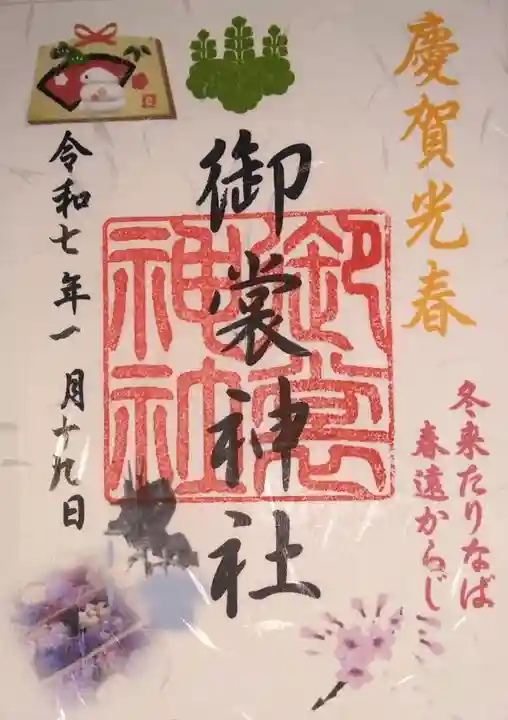 慶賀光春
冬来たりなば
春遠からじ
御裳神社
御裳
神社
令和七年一月十九日